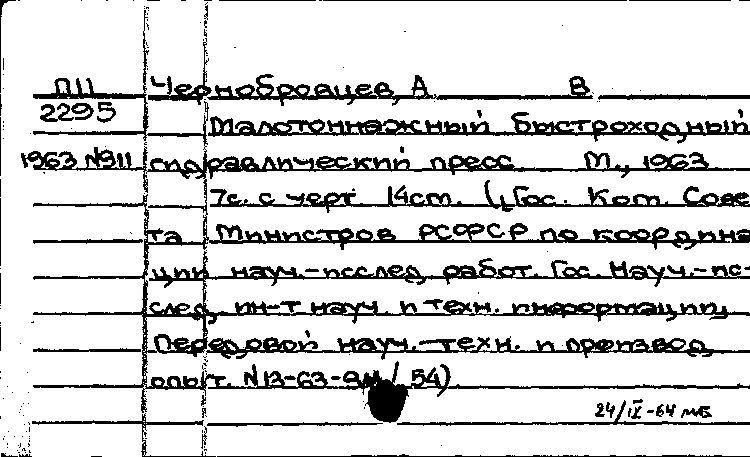 П11 Чернобровцев, А В
2295 Малотоннажный быстроходный
1963 №911 гидравлический пресс М., 1963
7с. с черт 14см. (Гос. Ком. Сове
та Министров РСФСР по координа
ции науч.-исслед. работ. Гос. Науч.-ис-
след. ин-т науч. и техн. информации,
Передовой науч.-техн. и производ.
опыт. №13-63-9м/54)
24/IX-64